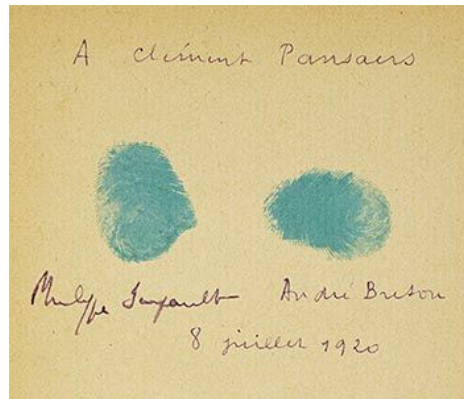 A Clément Pansaers
Philippe Soupault André Breton
8 juillet 1920